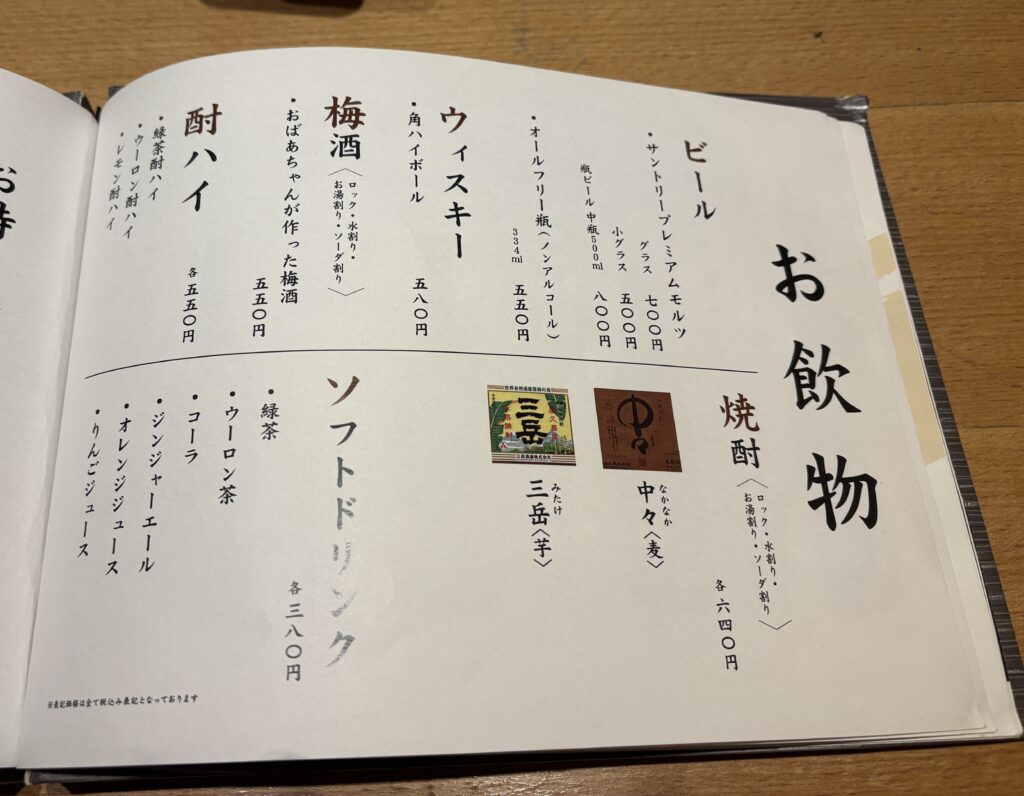 お飲物
ビール
・サントリープレミアムモルツ
グラス 七〇〇円
小グラス 五〇〇円
瓶ビール 中瓶500ml 八〇〇円
・オールフリー瓶(ノンアルコール)
334ml 五五〇円
ウィスキー
・角ハイボール
五八〇円
梅酒〈ロック・水割り・
お湯割り・ソーダ割り〉
・おばあちゃんが作った梅酒
五五〇円
酎ハイ
・緑茶酎ハイ
・ウーロン酎ハイ
・レモン酎ハイ
各 五五〇円
焼酎〈ロック・水割り・
お湯割り・ソーダ割り〉
各 六四〇円
中々
なかなか
中々〈麦〉
三岳
みたけ
三岳〈芋〉
ソフトドリンク
各 三八〇円
・緑茶
・ウーロン茶
・コーラ
・ジンジャーエール
・オレンジジュース
・りんごジュース
※表記価格は全て税込み表記となっております